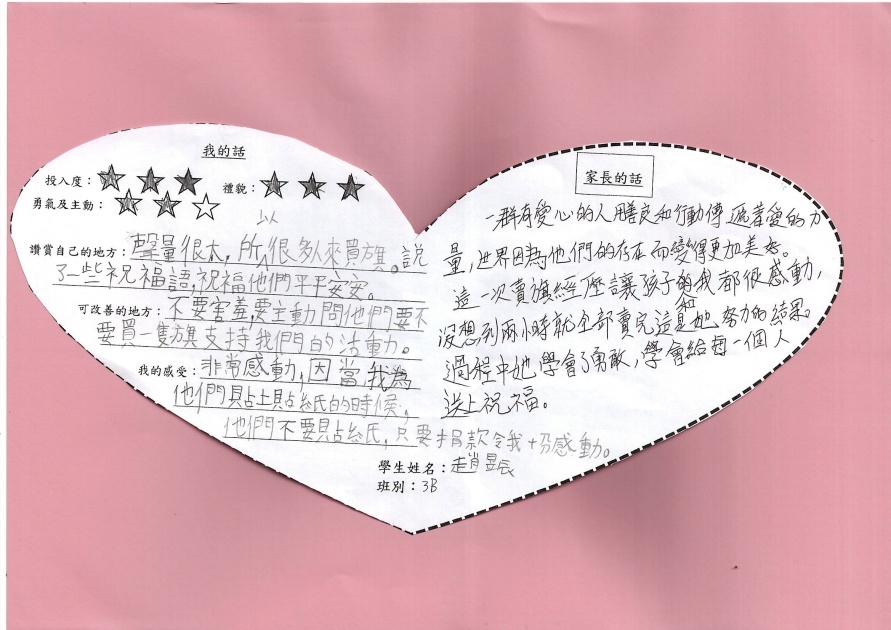 我的話
投入度：★★★ 禮貌：★★★
勇氣及主動：★★☆
讚賞自己的地方：聲量很大，所以很多人來買旗。說
了一些祝福語，祝福他們平平安安。
可改善的地方：不要害羞，要主動問他們要不
要買一隻旗支持我們的活動。
我的感受：非常感動，因當，我為
他們貼上貼紙的時候，
他們不要貼紙，只要捐款令我十份感動。
學生姓名：趙肖昱辰
班別：3B
家長的話
一群有愛心的人用善良和行動傳遞着愛的力
量，世界因為他們的存在而變得更加美好。
這一次賣旗經歷讓孩子和我都很感動，
沒想到兩小時就全部賣完這是她努力的結果。
過程中她學會了勇敢，學會給每一個人
送上祝福。